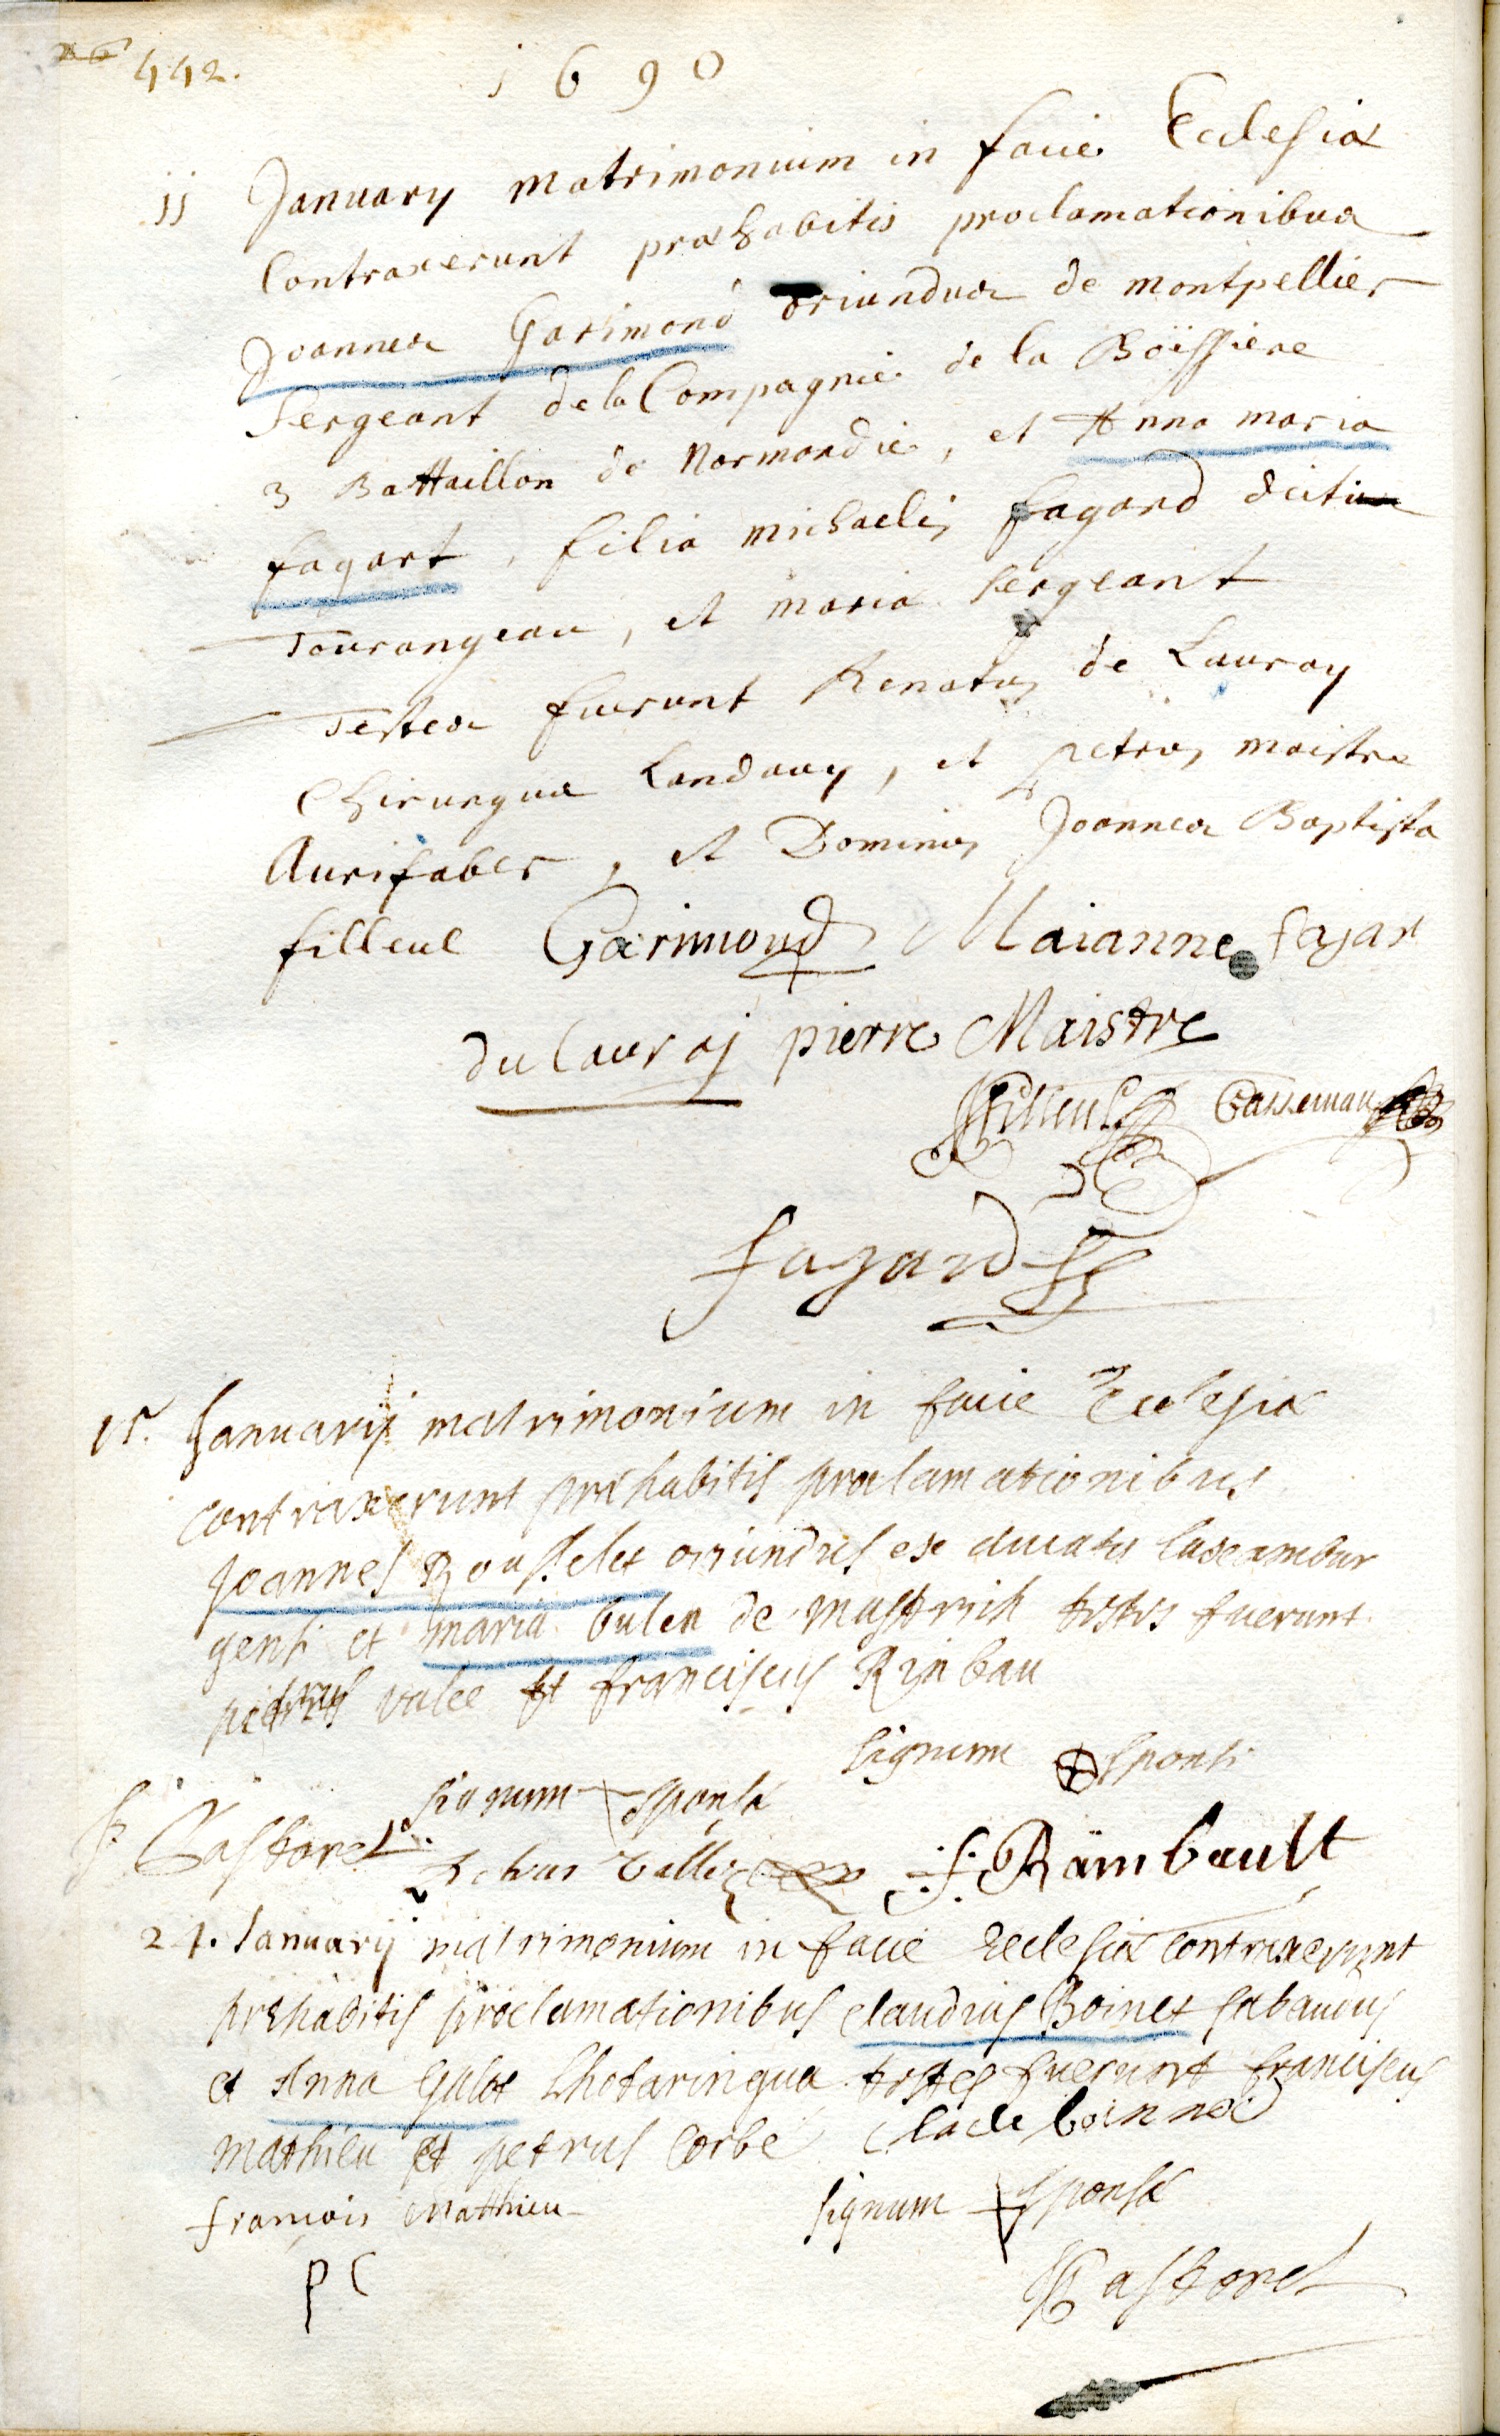 442.
1690
11 January matrimonium in facie Ecclesiæ
Contraxerunt præhabitis proclamationibus
Joannes Garimond oriundus de montpellier
Sergeant de la Compagnie de la Boissiere
3 Battaillon de Normandie, et Anna maria
fagart, filia michaelis fagard dicti
Tourangeau, et mariæ sergeant
Testes fuerunt Renatus de Lauray
Chirurgus Landavy, et petrus maistre
Aurifaber, et Dominus Joannes Baptista
filleul Garimond Maianne fajar
du lauraj pierre Maistre
filleul
fagard
15. Januarij matrimonium in facie Ecclesiæ
contraxerunt præhabitis proclamationibus
Joannes Rousselet oriundus ex ducatu luxambur
gensi et maria bulen de mastrich testes fuerunt
petrus valee et franciscus Rinbau
signum sponsi
signum sponsæ
Pastoret
f. Rambault
21. Januarij matrimonium in facie Ecclesiæ contraxerunt
præhabitis proclamationibus claudius Boinet sabaudus
et Anna Gulot Lhotaringua testes fuerunt franciscus
mathieu et petrus Corbe Clade boinnet
francois Matthieu signum sponsæ
PC
Pastoret